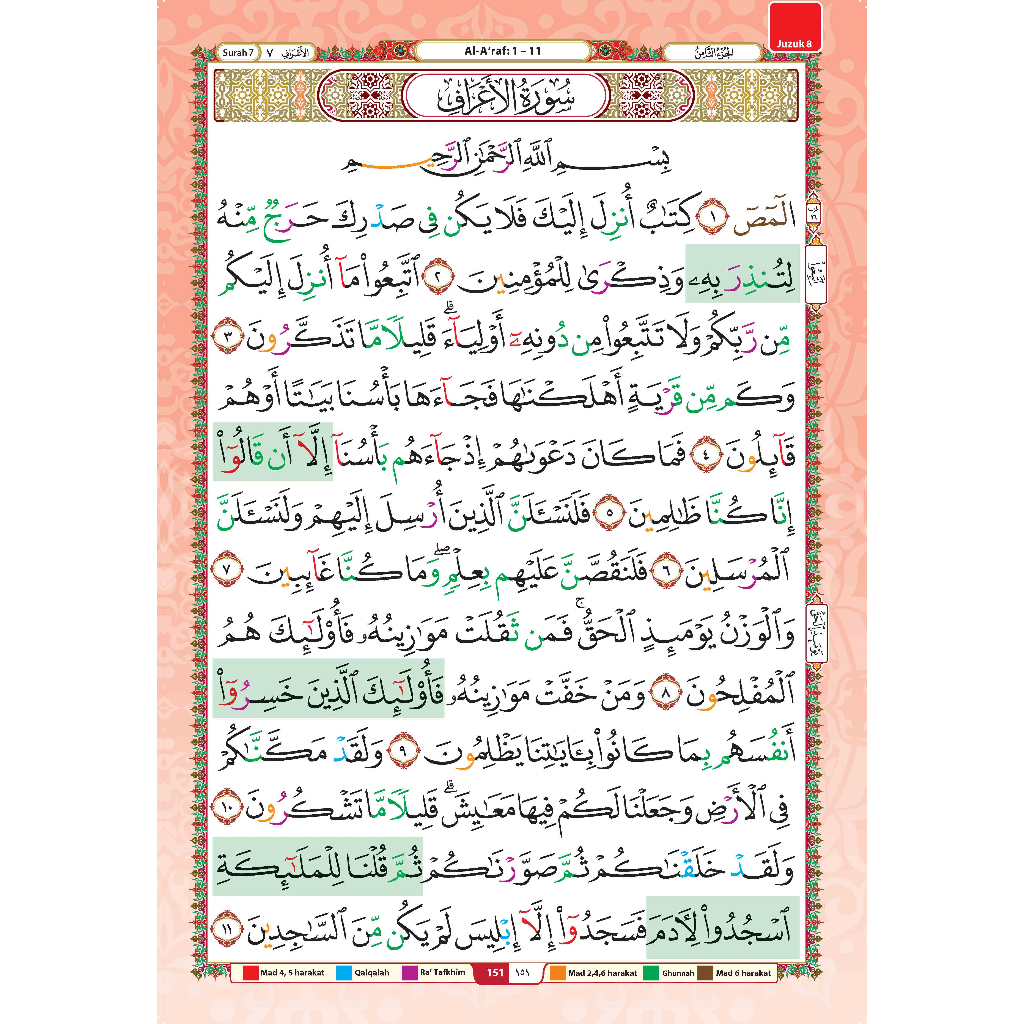 Juzuk 8
Surah 7 ٧ الأعراف
Al-A'raf: 1 – 11
الجزء الثامن
سُورَةُ الْأَعْرَافِ
بِسْمِ اللَّهِ الرَّحْمَٰنِ الرَّحِيمِ
الٓمٓصٓ ١ كِتَٰبٌ أُنزِلَ إِلَيْكَ فَلَا يَكُن فِى صَدْرِكَ حَرَجٌ مِّنْهُ
لِتُنذِرَ بِهِۦ وَذِكْرَىٰ لِلْمُؤْمِنِينَ ٢ ٱتَّبِعُوا۟ مَآ أُنزِلَ إِلَيْكُم
مِّن رَّبِّكُمْ وَلَا تَتَّبِعُوا۟ مِن دُونِهِۦٓ أَوْلِيَآءَ ۗ قَلِيلًا مَّا تَذَكَّرُونَ ٣
وَكَم مِّن قَرْيَةٍ أَهْلَكْنَٰهَا فَجَآءَهَا بَأْسُنَا بَيَٰتًا أَوْ هُمْ
قَآئِلُونَ ٤ فَمَا كَانَ دَعْوَىٰهُمْ إِذْ جَآءَهُم بَأْسُنَآ إِلَّآ أَن قَالُوٓا۟
إِنَّا كُنَّا ظَٰلِمِينَ ٥ فَلَنَسْـَٔلَنَّ ٱلَّذِينَ أُرْسِلَ إِلَيْهِمْ وَلَنَسْـَٔلَنَّ
ٱلْمُرْسَلِينَ ٦ فَلَنَقُصَّنَّ عَلَيْهِم بِعِلْمٍ ۖ وَمَا كُنَّا غَآئِبِينَ ٧
وَٱلْوَزْنُ يَوْمَئِذٍ ٱلْحَقُّ ۚ فَمَن ثَقُلَتْ مَوَٰزِينُهُۥ فَأُو۟لَٰٓئِكَ هُمُ
ٱلْمُفْلِحُونَ ٨ وَمَنْ خَفَّتْ مَوَٰزِينُهُۥ فَأُو۟لَٰٓئِكَ ٱلَّذِينَ خَسِرُوٓا۟
أَنفُسَهُم بِمَا كَانُوا۟ بِـَٔايَٰتِنَا يَظْلِمُونَ ٩ وَلَقَدْ مَكَّنَّٰكُمْ
فِى ٱلْأَرْضِ وَجَعَلْنَا لَكُمْ فِيهَا مَعَٰيِشَ ۗ قَلِيلًا مَّا تَشْكُرُونَ ١٠
وَلَقَدْ خَلَقْنَٰكُمْ ثُمَّ صَوَّرْنَٰكُمْ ثُمَّ قُلْنَا لِلْمَلَٰٓئِكَةِ
ٱسْجُدُوا۟ لِـَٔادَمَ فَسَجَدُوٓا۟ إِلَّآ إِبْلِيسَ لَمْ يَكُن مِّنَ ٱلسَّٰجِدِينَ ١١
Mad 4, 5 harakat Qalqalah Ra' Tafkhim 151 ١٥١ Mad 2,4,6 harakat Ghunnah Mad 6 harakat